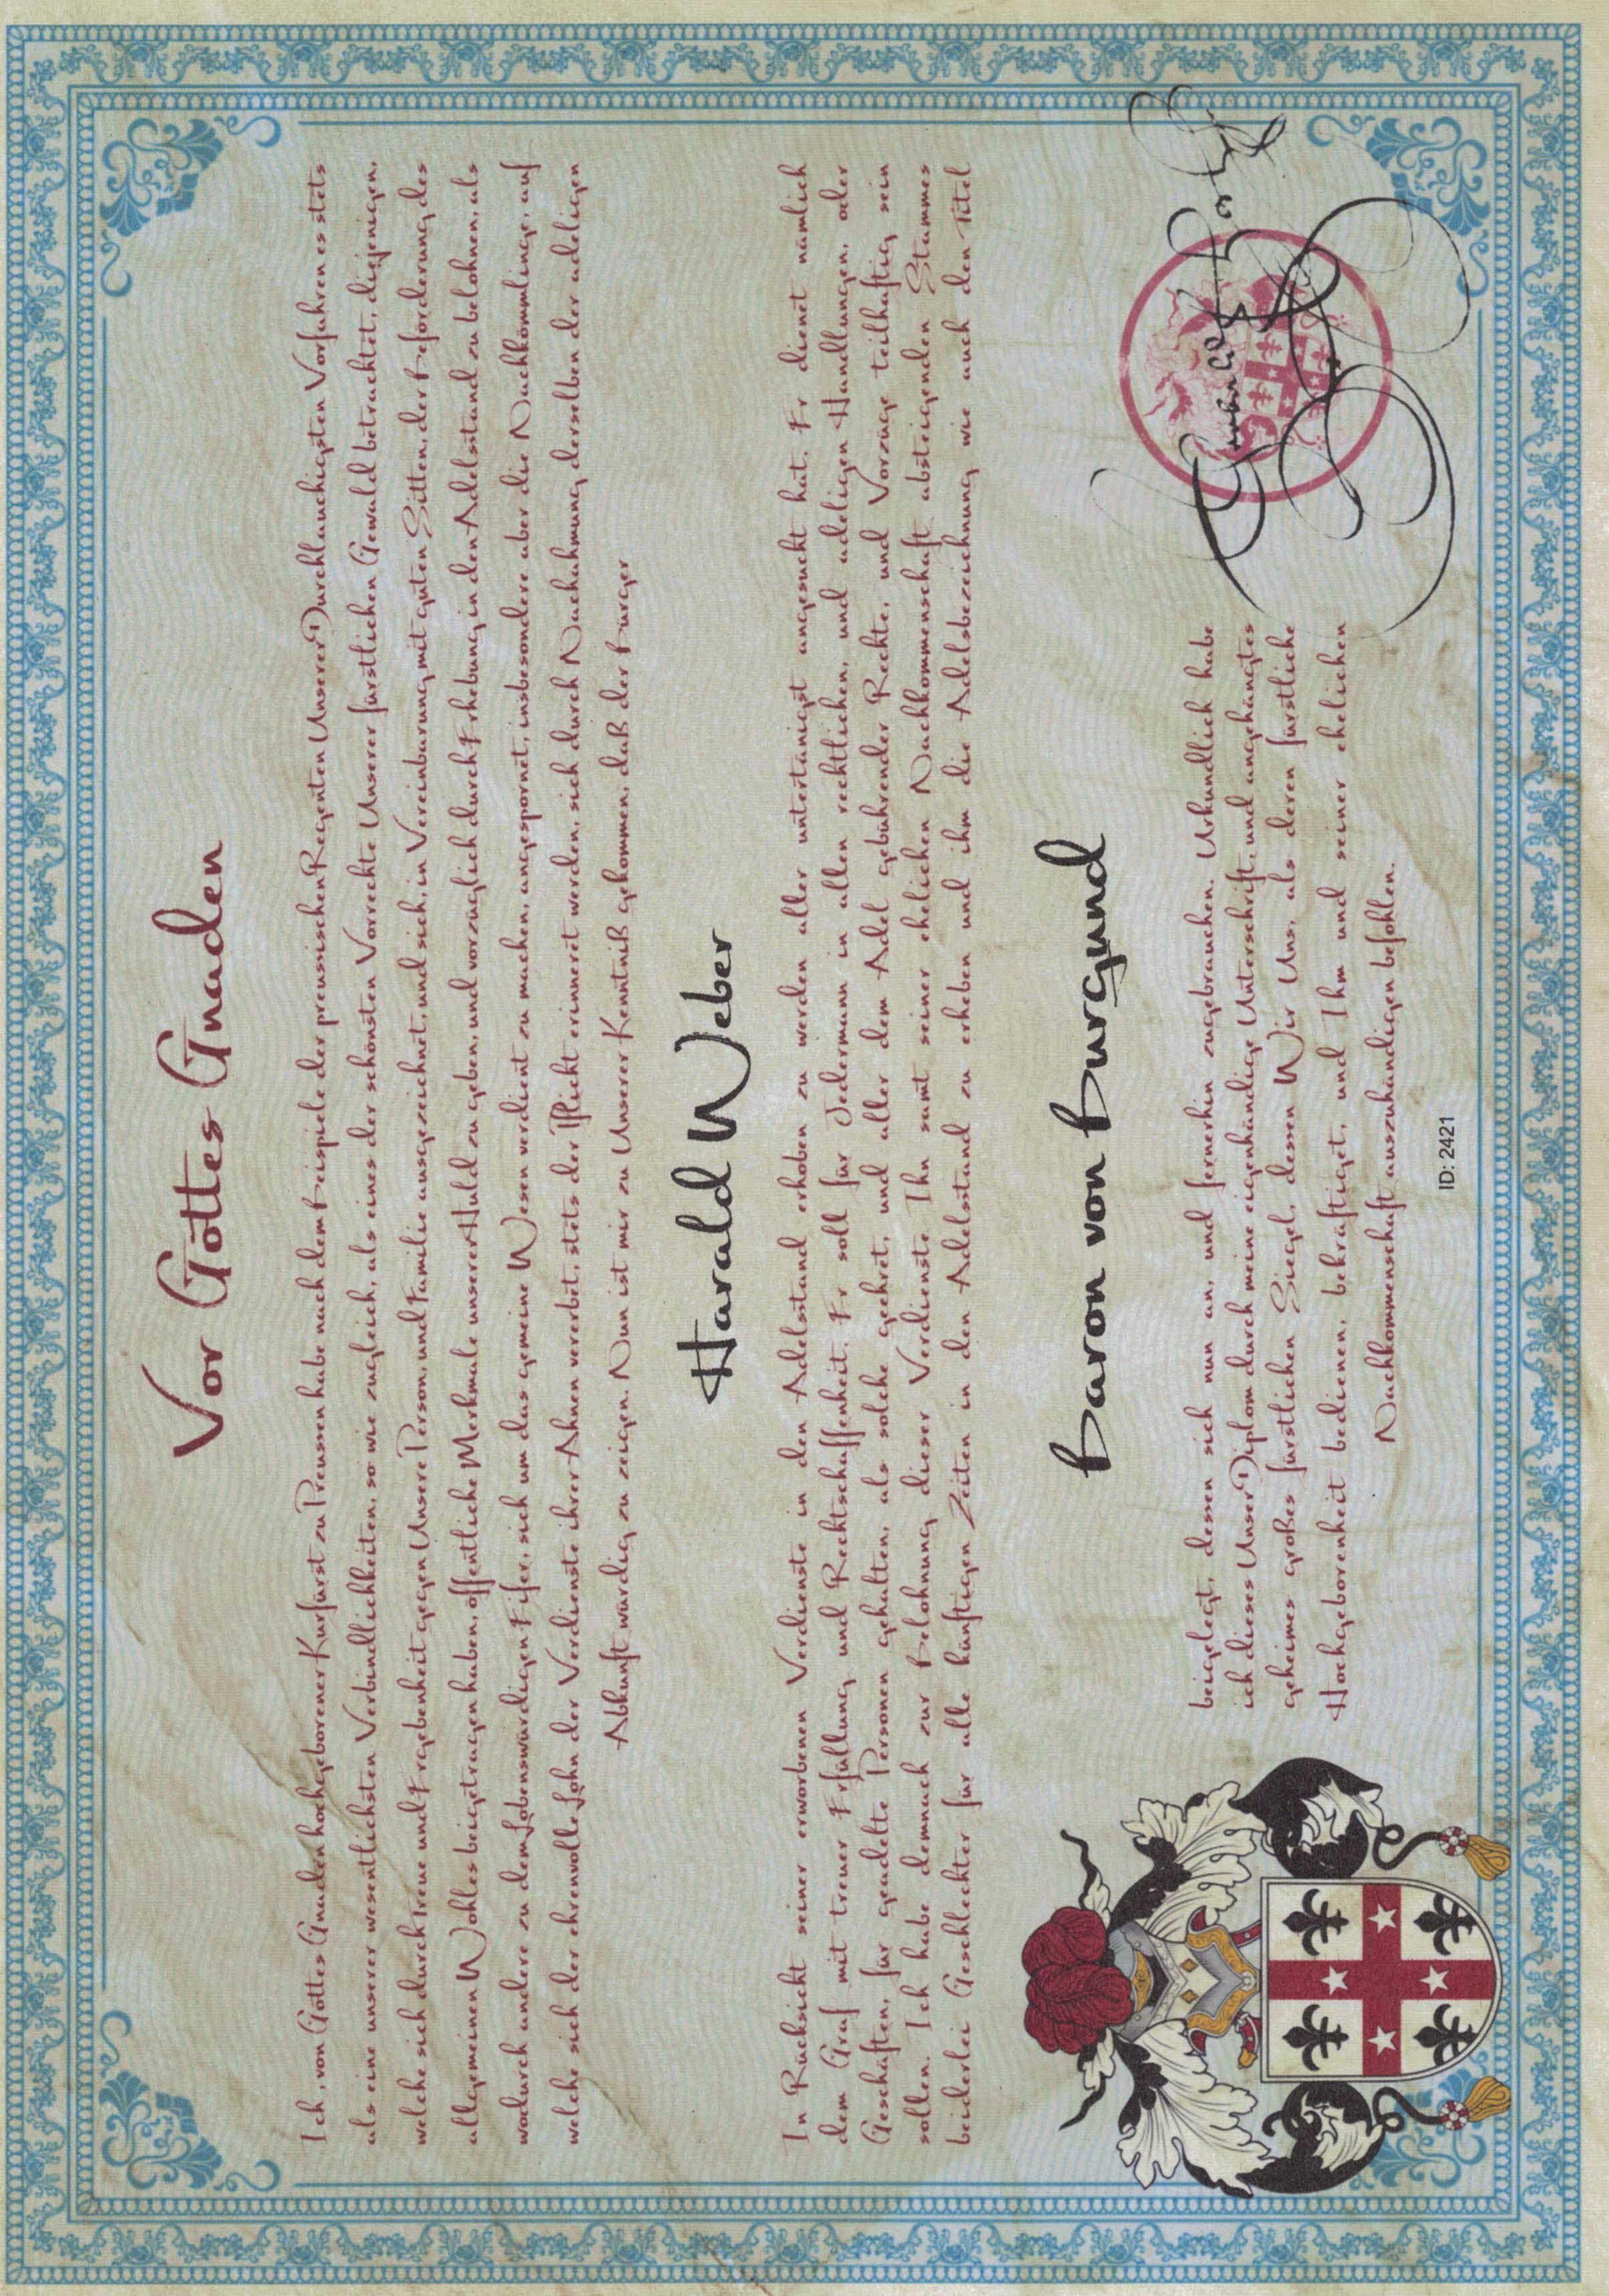 Vor Gottes Gnaden
Ich, von Gottes Gnaden hochgeborener Kurfürst zu Preussen habe nach dem Beispiele der preusischen Regenten Unserer Durchlauchigsten Vorfahren es stets
als eine unserer wesentlichsten Verbindlichkeiten, so wie zugleich, als eines der schönsten Vorrechte Unserer fürstlichen Gewald betrachtet, diejenigen,
welche sich durch Treue und Ergebenheit gegen Unsere Person, und Familie ausgezeichnet, und sich, in Vereinbarung mit guten Sitten, der Beförderung des
allgemeinen Wohles beigetragen haben, öffentliche Merkmale unserer Huld zu geben, und vorzüglich durch Erhebung in den Adelsstand zu belohnen, als
wodurch andere zu dem Lobenswürdigen Eifer, sich um das gemeine Wesen verdient zu machen, angespornet, insbesondere aber die Nachkömmlinge, auf
welche sich der ehrenvolle Lohn der Verdienste ihrer Ahnen vererbet, stets der Pflicht erinneret werden, sich durch Nachahmung derselben der adeligen
Abkunft würdig zu zeigen. Nun ist mir zu Unserer Kenntniß gekommen, daß der Bürger
Harald Weber
In Rücksicht seiner erworbenen Verdienste in den Adelsstand erhoben zu werden aller untertänigst angesucht hat. Er dienet nämlich
dem Graf mit treuer Erfüllung und Rechtschaffenheit. Er soll für Jedermann in allen rechtlichen, und adeligen Handlungen, oder
Geschäften, für geadelte Personen gehalten, als solche geehret, und aller dem Adel gebührender Rechte, und Vorzüge teilhaftig sein
sollen. Ich habe demnach zur Belohnung dieser Verdienste Ihn samt seiner ehelichen Nachkommenschaft absteigenden Stammes
beiderlei Geschlechter für alle künftigen Zeiten in den Adelsstand zu erheben und ihm die Adelsbezeichnung wie auch den Titel
Baron von Burgund
beigelegt, dessen sich nun an, und fernerhin zugebrauchen. Urkundlich habe
ich dieses Unser Diplom durch meine eigenhändige Unterschrift, und angehängtes
geheimes großes fürstlichen Siegel, dessen Wir Uns, als deren fürstliche
Hochgeborenheit bedienen, bekräftiget, und Ihm und seiner ehelichen
Nachkommenschaft auszuhändigen befohlen.
ID: 2421